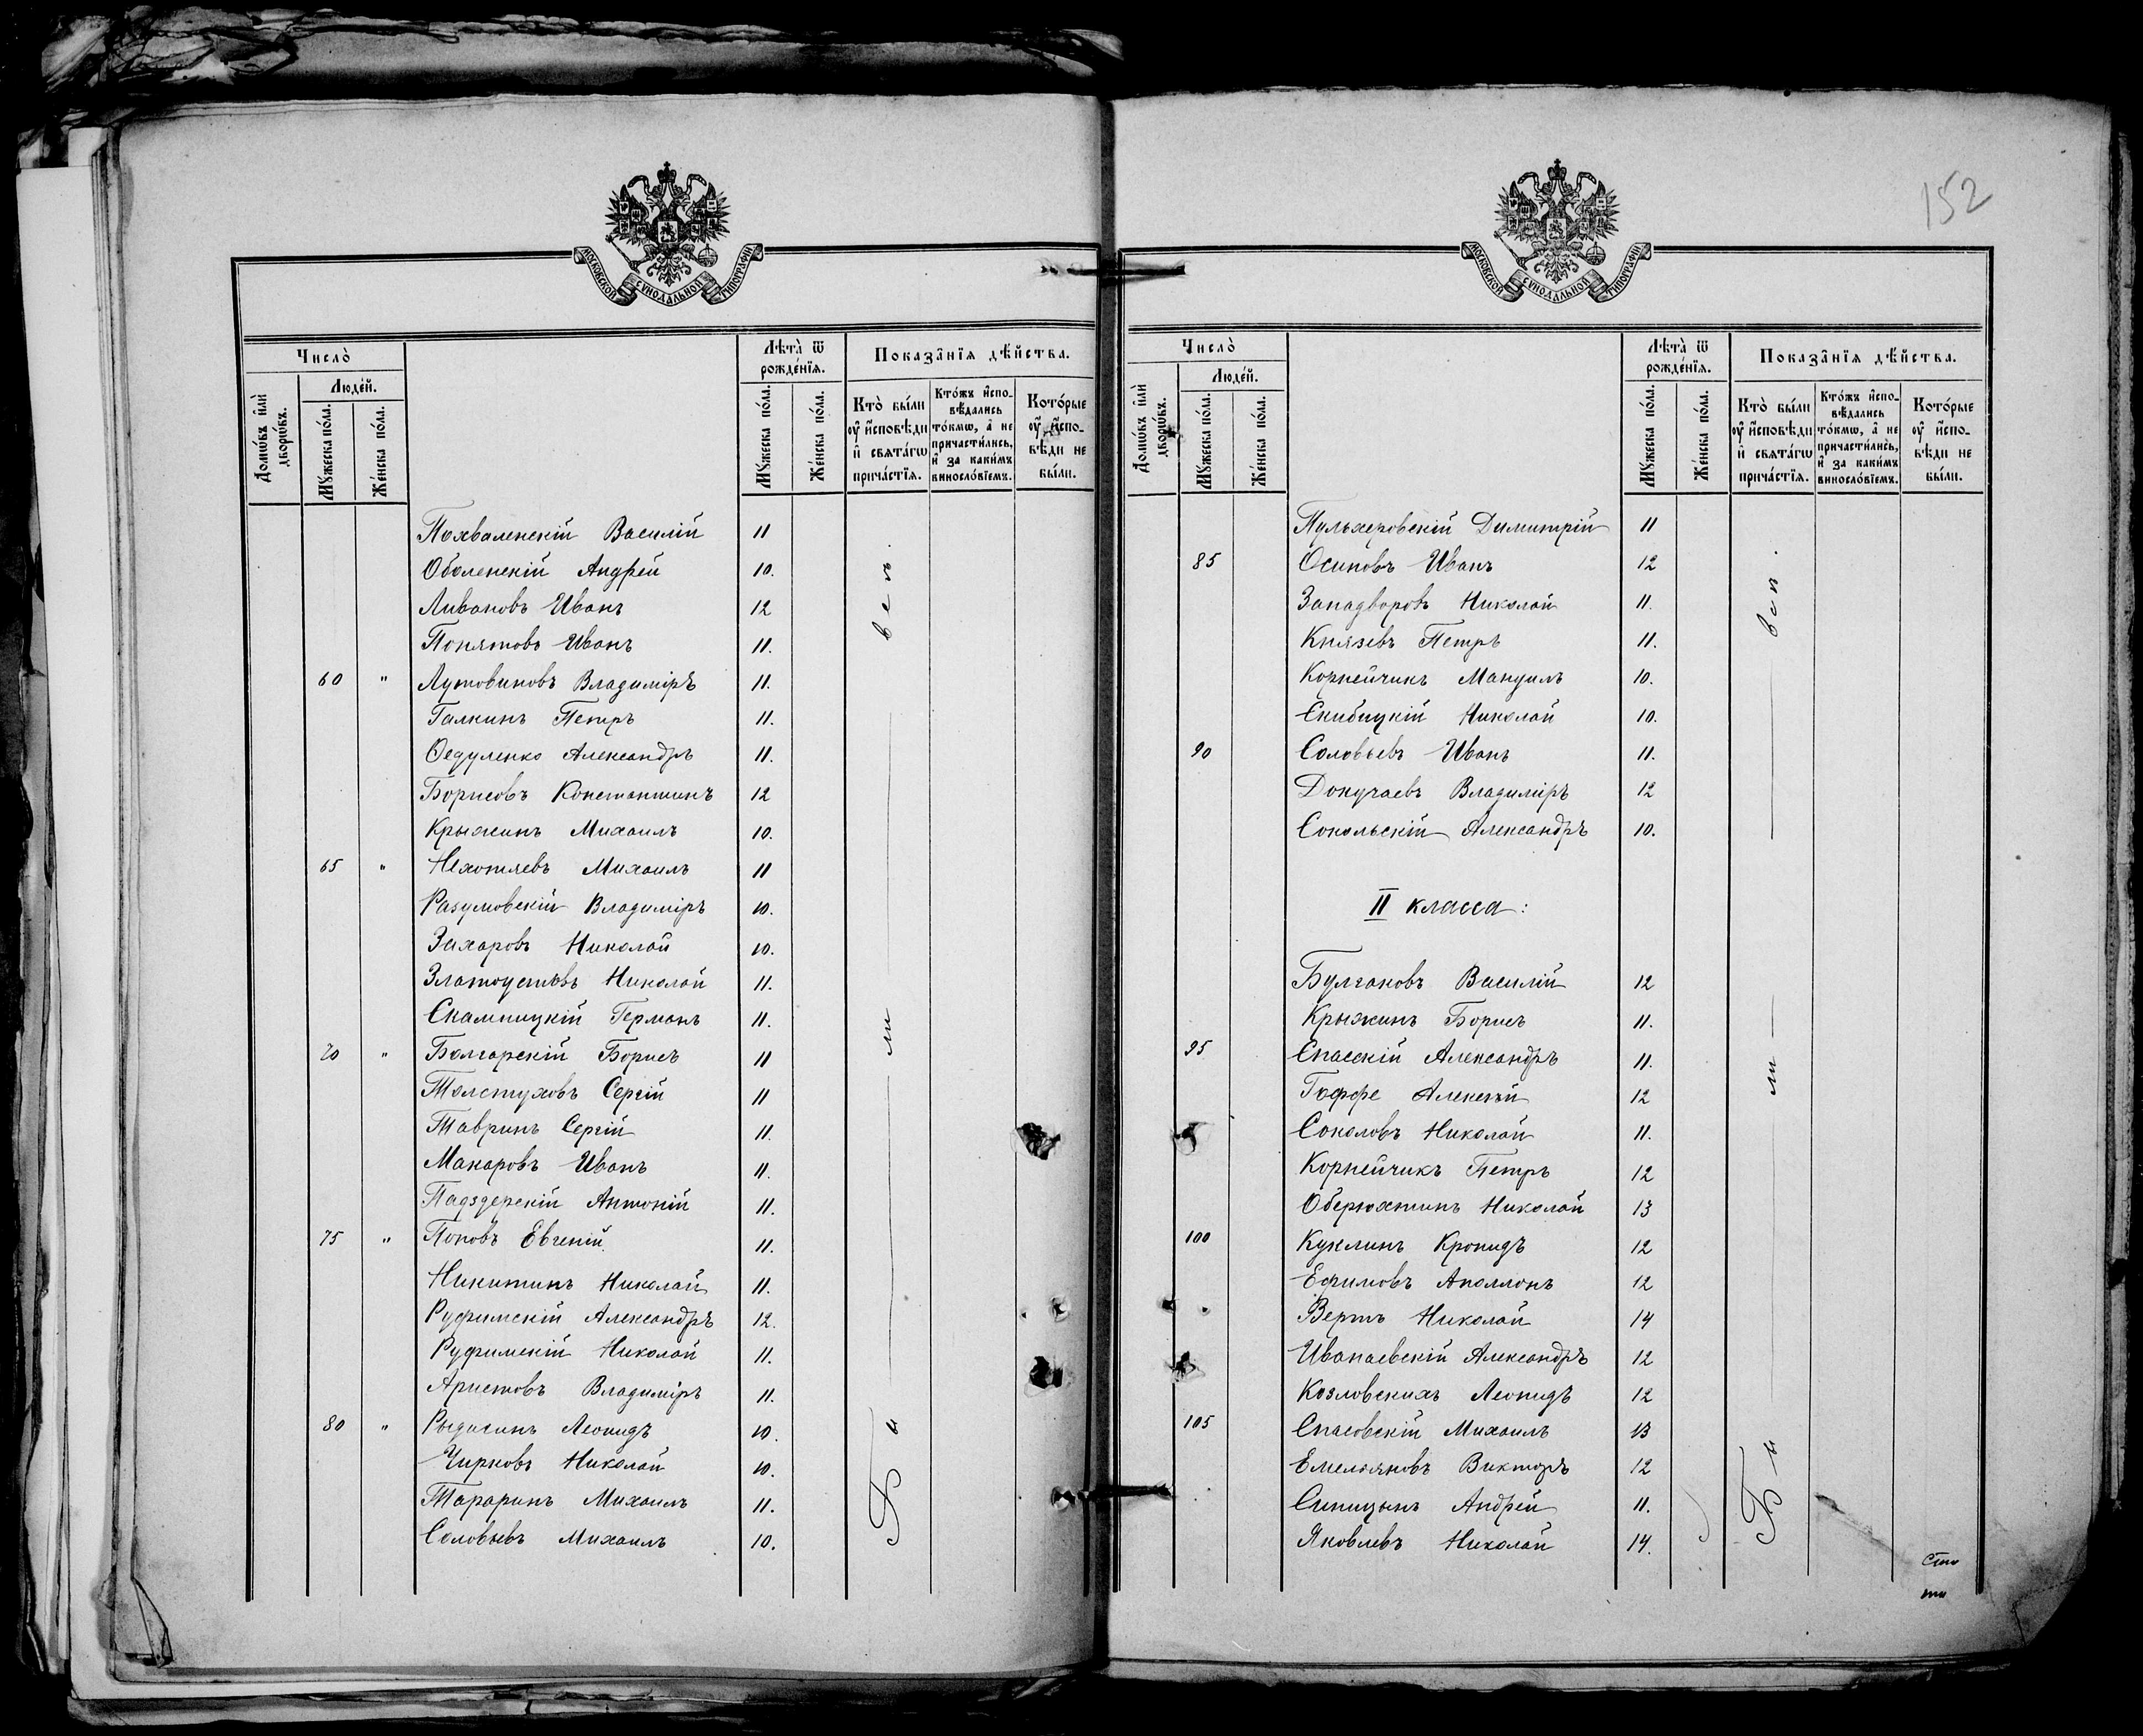 МОСКОВСКОЙ СѴНОДАЛЬНОЙ ТИПОГРАФІИ
Число̀
Домѡ́въ и҆лѝ дворѡ́въ.
Люде́й.
Мꙋ́жеска по́ла.
Же́нска по́ла.
Лѣта̀ ѿ рожде́нїѧ.
Мꙋ́жеска по́ла.
Же́нска по́ла.
Показа̑нїѧ дѣ́йства.
Кто̀ бы́ли ᲂу҆ и҆сповѣ́ди и҆ свѧта́гѡ прича́стїѧ.
Кто́жъ и҆сповѣ́дались то́кмѡ, а҆ не причасти́лись, и҆ за каки́мъ винословїемъ.
Кото́рые ᲂу҆ и҆сповѣ́ди не бы́ли.
Похваленскій Василій 11
Оболенскій Андрей 10.
Ливановъ Иванъ 12
Понятовъ Иванъ 11.
60 " Лутовиновъ Владиміръ 11.
Галкинъ Петръ 11.
Ѳедуленко Александръ 11.
Борисовъ Константинъ 12
Крыжинъ Михаилъ 10.
65 " Нехотяевъ Михаилъ 11
Разумовскій Владиміръ 10.
Захаровъ Николай 10.
Златоустовъ Николай 11.
Скамницкій Германъ 11.
70 " Болгарскій Борисъ 11
Толстуховъ Сергій 11
Тавринъ Сергій 11.
Макаровъ Иванъ 11.
Падздерскій Антоній 11.
75 " Поповъ Евгеній 11.
Никитинъ Николай 11.
Руфимскій Александръ 12.
Руфимскій Николай 11.
Аристовъ Владиміръ 11.
80 " Леонидъ 10.
Чирковъ Николай 10.
Тараринъ Михаилъ 11.
Соловьевъ Михаилъ 10.
Бы — ли — всѣ.
152
МОСКОВСКОЙ СѴНОДАЛЬНОЙ ТИПОГРАФІИ
Число̀
Домѡ́въ и҆лѝ дворѡ́въ.
Люде́й.
Мꙋ́жеска по́ла.
Же́нска по́ла.
Лѣта̀ ѿ рожде́нїѧ.
Мꙋ́жеска по́ла.
Же́нска по́ла.
Показа̑нїѧ дѣ́йства.
Кто̀ бы́ли ᲂу҆ и҆сповѣ́ди и҆ свѧта́гѡ прича́стїѧ.
Кто́жъ и҆сповѣ́дались то́кмѡ, а҆ не причасти́лись, и҆ за каки́мъ винословїемъ.
Кото́рые ᲂу҆ и҆сповѣ́ди не бы́ли.
Пульхеровскій Димитрій 11
85 Осиповъ Иванъ 12
Западворовъ Николай 11.
Князевъ Петръ 11.
Корнейчикъ Мануилъ 10.
Скибицкій Николай 10.
90 Соловьевъ Иванъ 11.
Докучаевъ Владиміръ 12
Сокольскій Александръ 10.
II класса:
Булгаковъ Василій 12
Крыжинъ Борисъ 11.
95 Спасскій Александръ 11.
Гоффе Алексѣй 12
Соколовъ Николай 11.
Корнейчикъ Петръ 12
Оберюхтинъ Николай 13
100 Куклинъ Кронидъ 12
Ефимовъ Аполлонъ 12
Вертъ Николай 14
Иванаевскій Александръ 12
Козловскихъ Леонидъ 12
105 Спасовскій Михаилъ 13
Емельяновъ Викторъ 12
Синицынъ Андрей 11.
Яковлевъ Николай 14.
Бы — ли — всѣ.